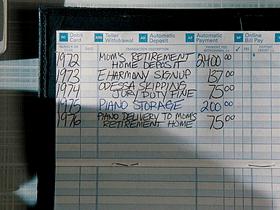 Debit Card
Teller Withdrawal
Automatic Deposit
Automatic Payment
Online Bill Pay
1972 MOM'S RETIREMENT HOME DEPOSIT 2400 00
1973 EHARMONY SIGNUP 137 00
1974 ODESSA SKIPPING JURY DUTY FINE 75 00
1975 PIANO STORAGE 200 00
1976 PIANO DELIVERY TO MOM'S RETIREMENT HOME 75 00